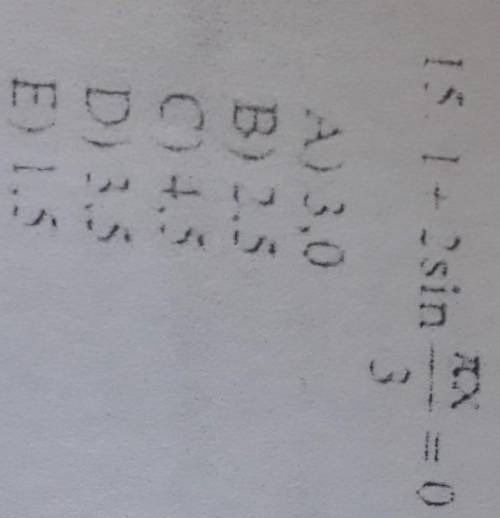 15. 1 + 2sin πx/3 = 0
A) 3,0
B) 2,5
C) 4,5
D) 3,5
E) 1,5